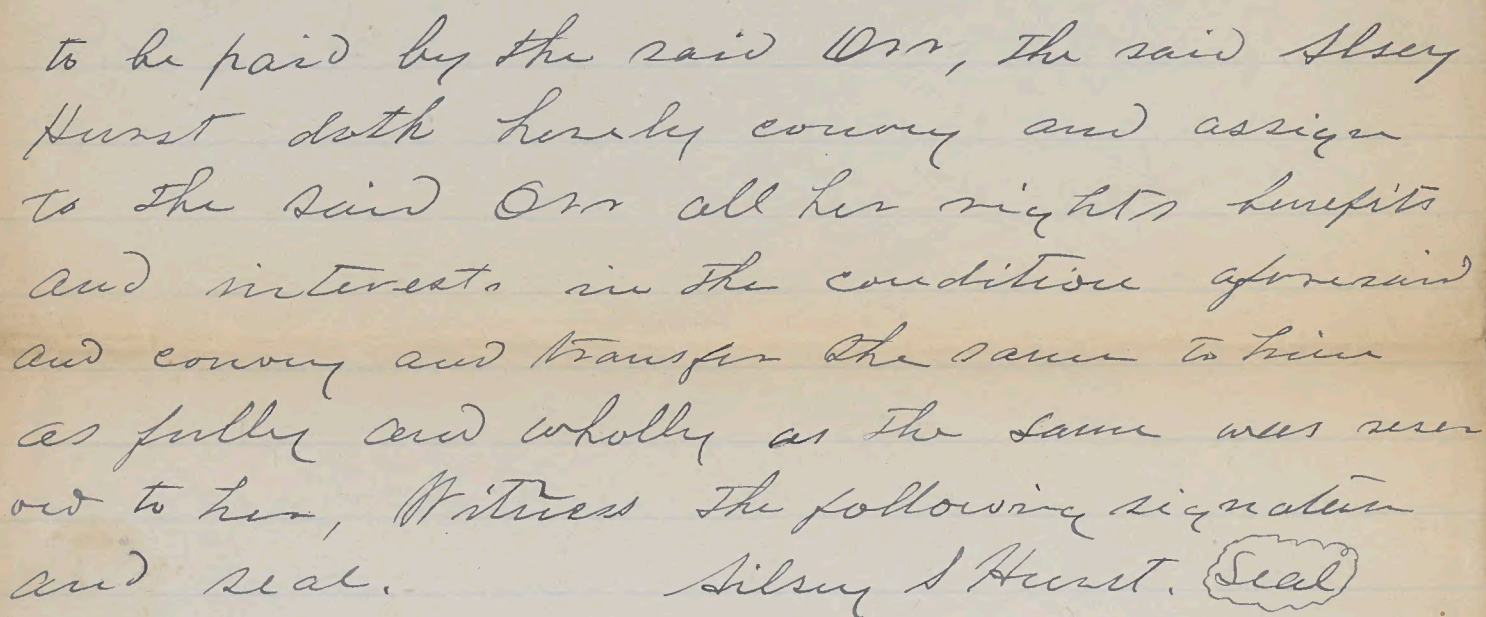 to be paid by the said Orr, the said Alsey
Hurst doth hereby convey and assign
to the said Orr all her rights benefits
and interests in the condition aforesaid
and convey and transfer the same to him
as fully and wholly as the same was reser
ved to her, Witness the following signature
and seal. Ailsey S Hurst. Seal